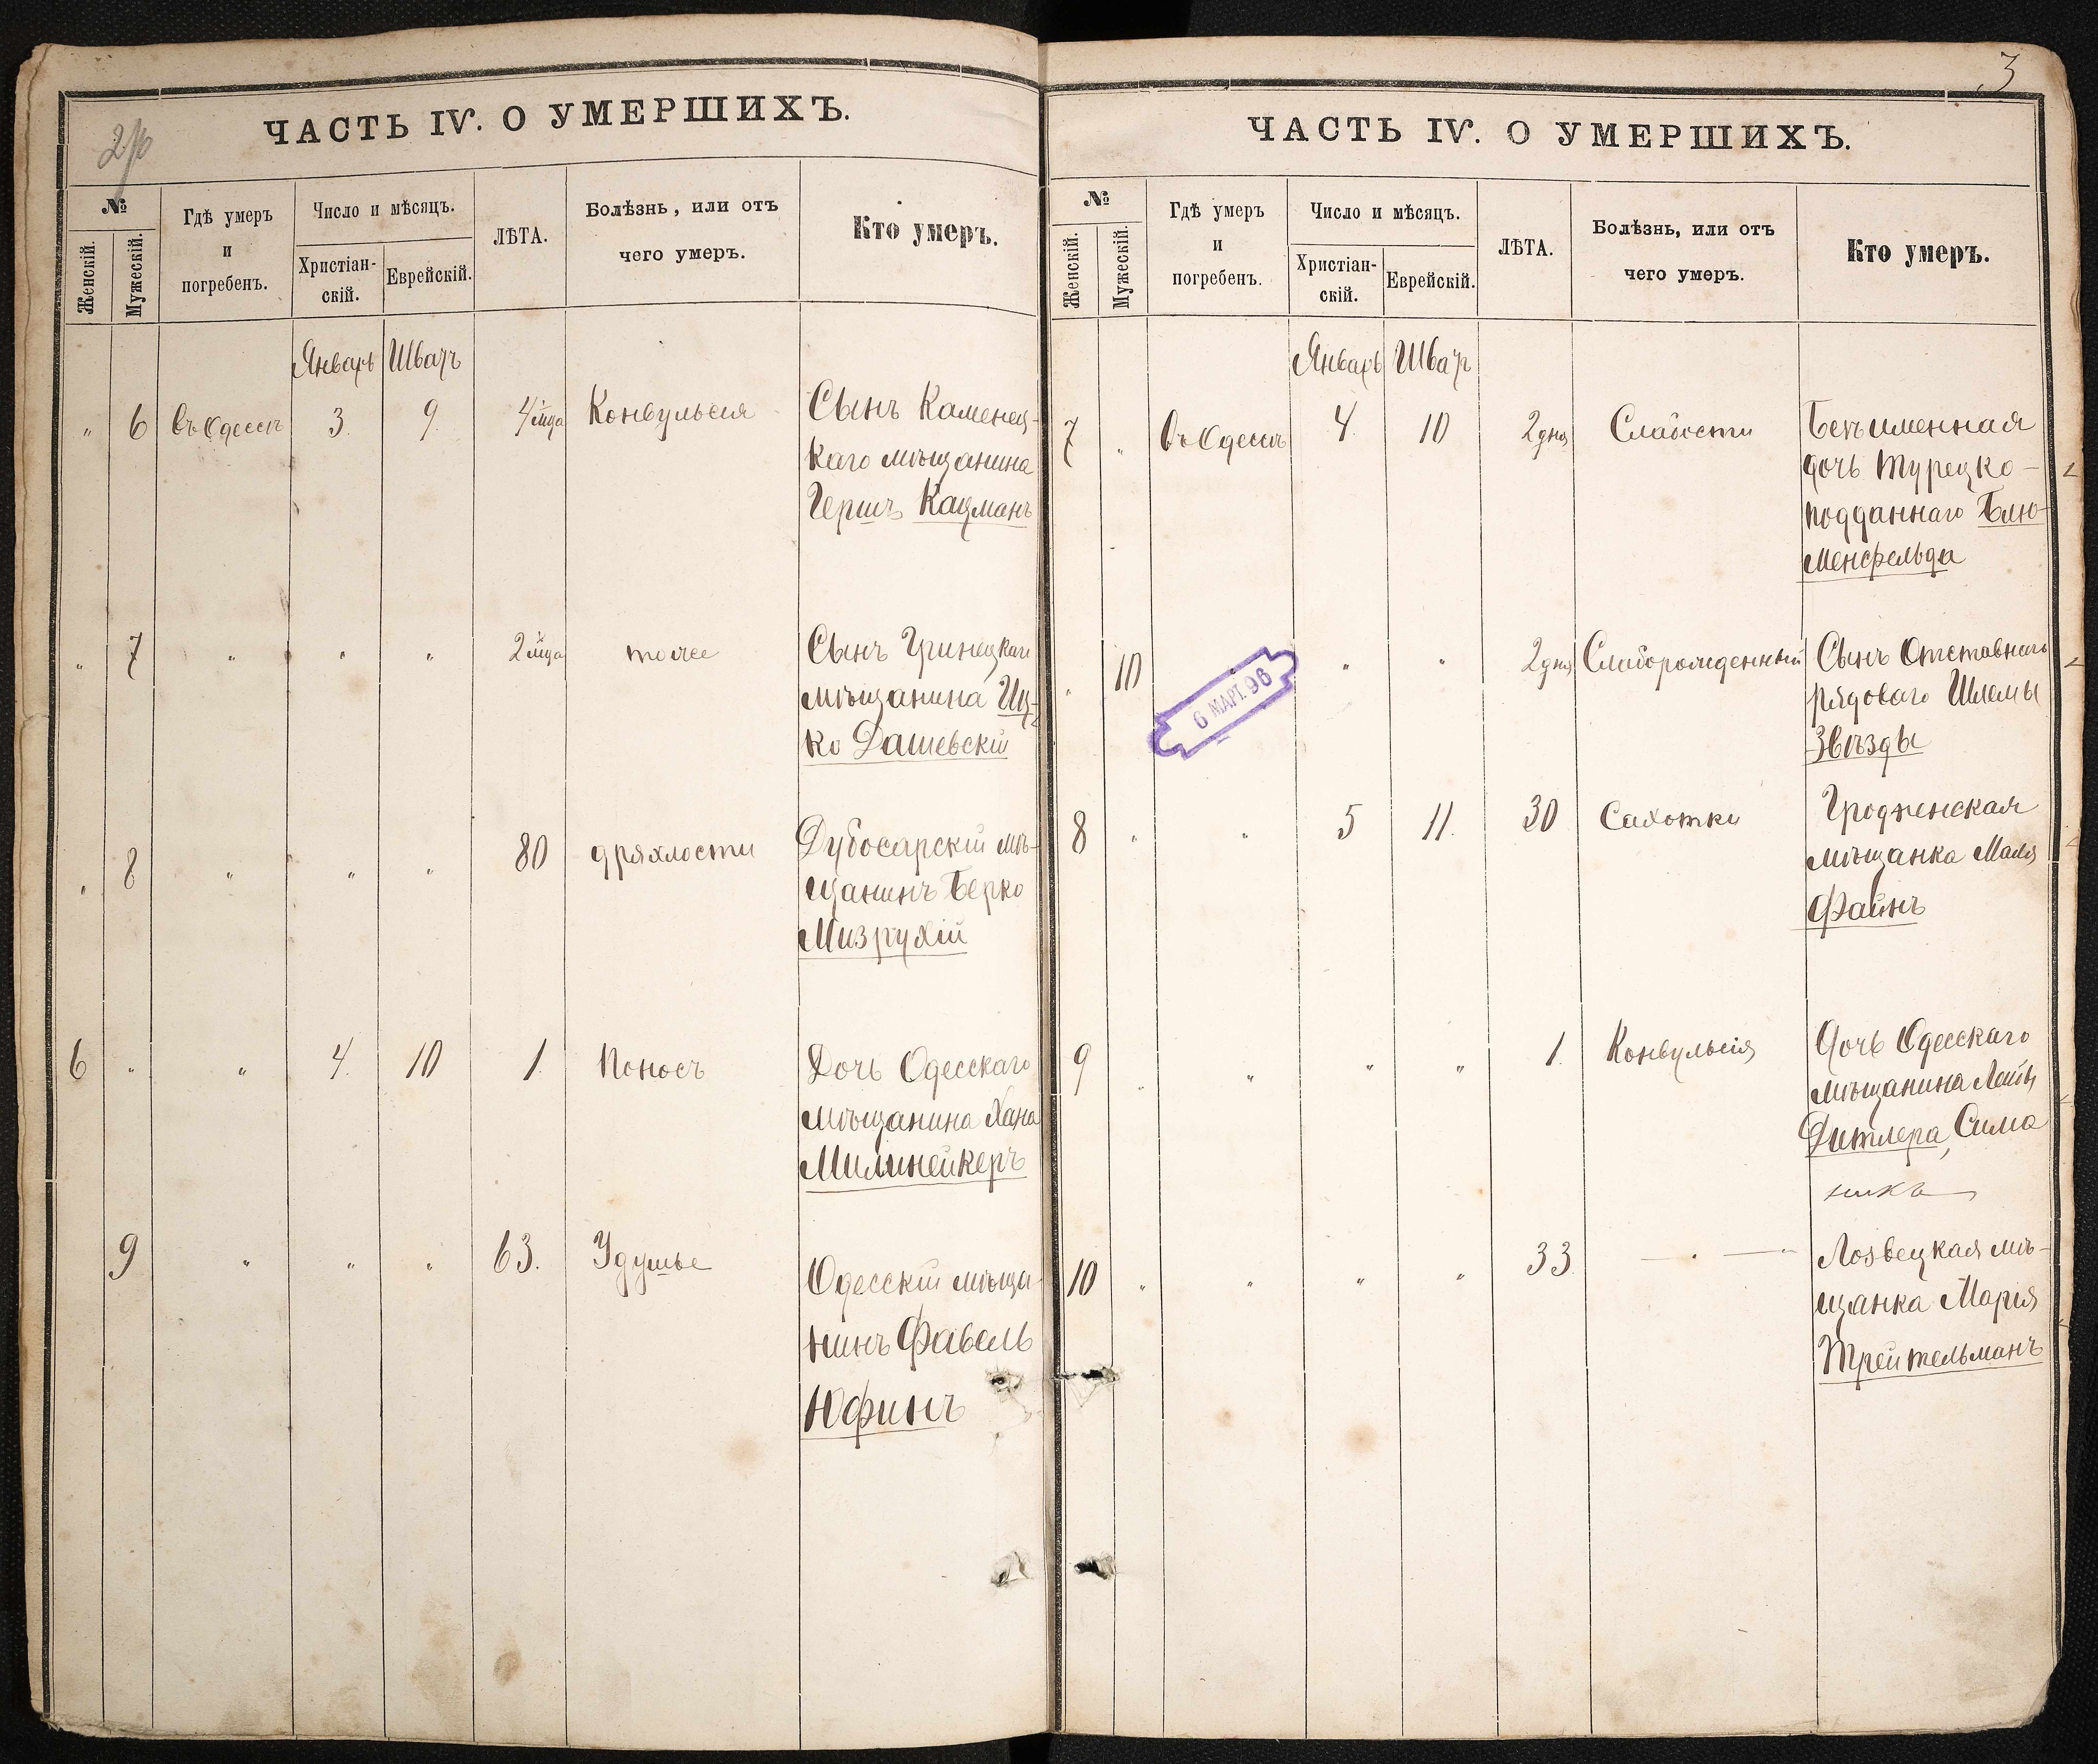 ЧАСТЬ IV. О УМЕРШИХЪ.
№
Женскій.
Мужескій.
Гдѣ умеръ
и
погребенъ.
Число и мѣсяцъ.
Христіан-
скій.
Еврейскій.
ЛѢТА.
Болѣзнь, или отъ
чего умеръ.
Кто умеръ.
Январь Шватъ
" 6 въ Одессѣ 3. 9. 4 м-ца Конвульсія Сынъ Каменец-
каго мѣщанина
Гершъ Кацманъ
" 7 " " " 2 м-ца тоже Сынъ Гринецкаго
мѣщанина Иц-
ко Дашевскій
" 8 " " " 80 дряхлости Дубосарскій мѣ-
щанинъ Берко
Мизрухій
6 " " 4. 10 1. Поносъ Дочь Одесскаго
мѣщанина Хана
Милинейкеръ
9 " " " 63. Удушье Одесскій мѣща-
нинъ Фавель
Юфинъ
3
ЧАСТЬ IV. О УМЕРШИХЪ.
№
Женскій.
Мужескій.
Гдѣ умеръ
и
погребенъ.
Число и мѣсяцъ.
Христіан-
скій.
Еврейскій.
ЛѢТА.
Болѣзнь, или отъ
чего умеръ.
Кто умеръ.
Январь Шватъ
7 " въ Одессѣ 4. 10 2 дня Слабости Безъименная
дочь турецко-
подданнаго Блю-
менфельда
" 10 " " 2 дня Слаборожденный Сынъ Отставнаго
рядоваго Шлемы
Звѣзды
6 МАРТ. 96
8 " " 5 11. 30 Сахотки Гродненская
мѣщанка Маля
Файнъ
9 " " " " 1. Конвульсія Дочь Одесскаго
мѣщанина Лейбы
Дитлера, Сима
10 " " " " 33 — " — " Лозвецкая мѣ-
щанка Марія
Трейтельманъ